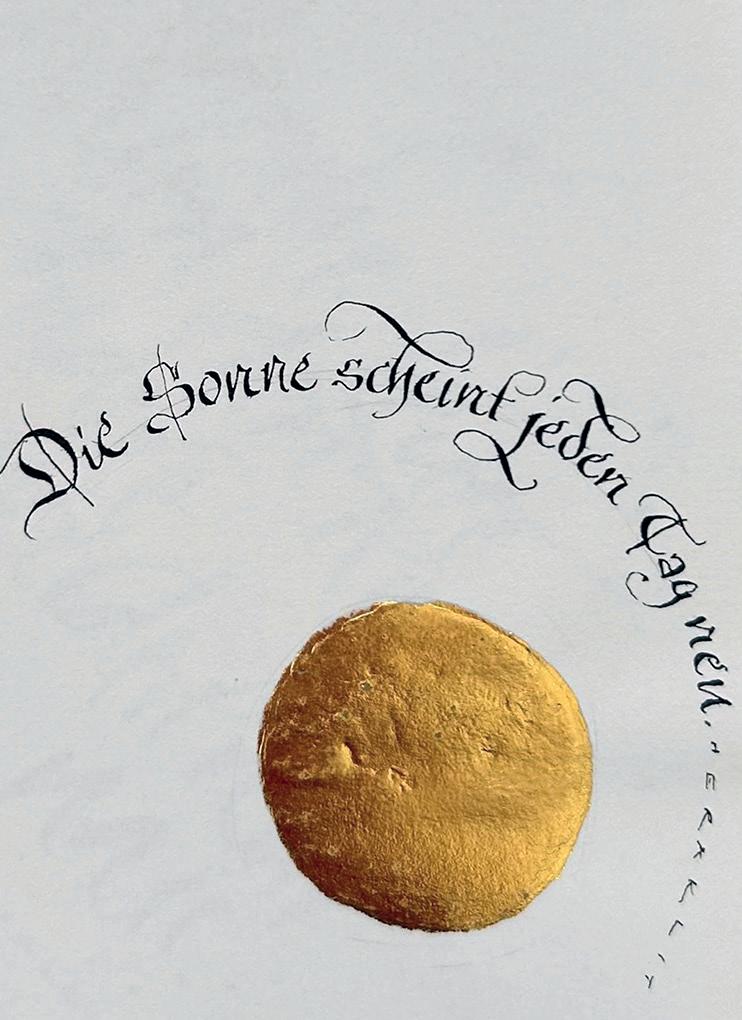 Die Sonne scheint jeden Tag neu. HERAKLIT